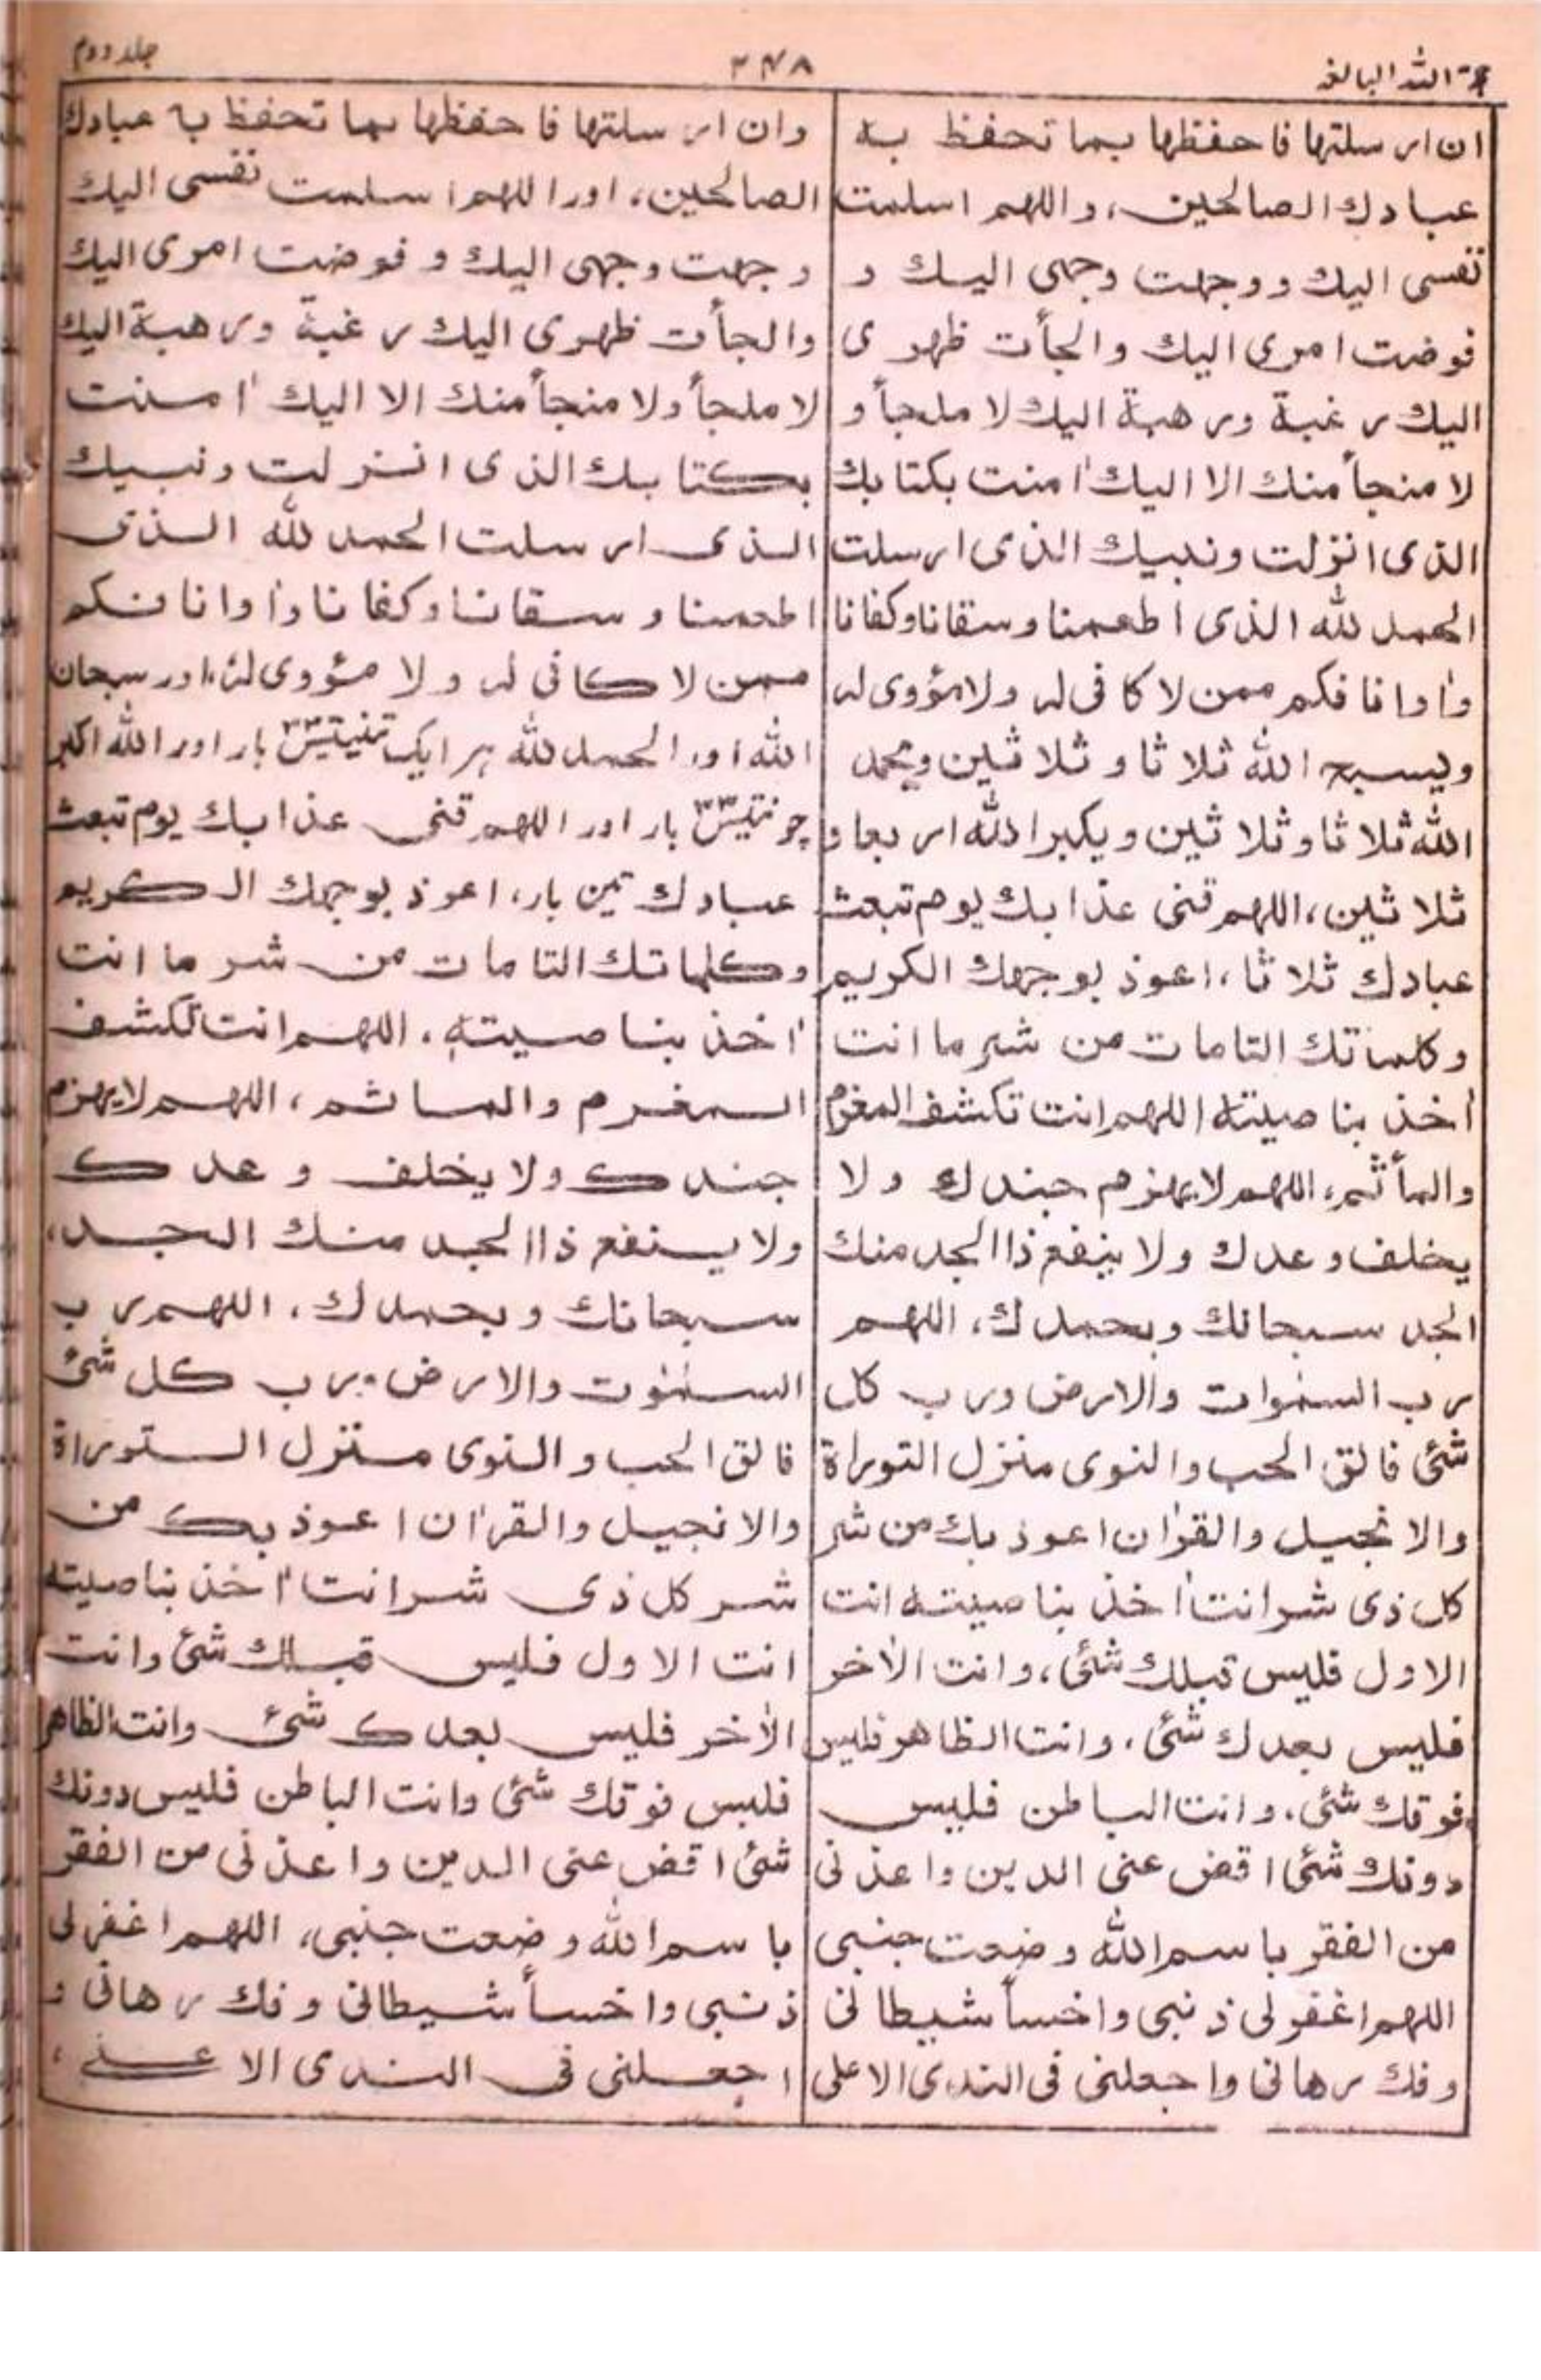 حجة الله البالغه
۳۴۸
جلد دوم
ان ارسلتها فاحفظها بما تحفظ به
عبادك الصالحين، واللهم اسلمت
نفسی اليك ووجهت وجهی اليك و
فوضت امری اليك والجأت ظهری
اليك رغبة ورهبة اليك لا ملجأ و
لا منجأ منك الا اليك اٰمنت بكتابك
الذی انزلت ونبيك الذی ارسلت
الحمد لله الذی اطعمنا وسقانا وكفانا
واٰوانا فكم ممن لا كافی له ولا مؤوی له
ويسبح الله ثلاثا وثلاثين ويحمد
الله ثلاثا وثلاثين ويكبر الله اربعا و
ثلاثين، اللهم قنی عذابك يوم تبعث
عبادك ثلاثا، اعوذ بوجهك الكريم
وكلماتك التامات من شر ما انت
اٰخذ بناصيته اللهم انت تكشف المغرم
والمأثم، اللهم لا يهزم جندك ولا
يخلف وعدك ولا ينفع ذا الجد منك
الجد سبحانك وبحمدك، اللهم
رب السمٰوات والارض ورب كل
شئی فالق الحب والنوی منزل التوراة
والانجيل والقراٰن اعوذ بك من شر
كل ذی شر انت اٰخذ بناصيته انت
الاول فليس قبلك شئی، وانت الاٰخر
فليس بعدك شئی، وانت الظاهر فليس
فوقك شئی، وانت الباطن فليس
دونك شئی اقض عنی الدين واعذنی
من الفقر باسم الله وضعت جنبی
اللهم اغفر لی ذنبی واخسأ شيطانی
وفك رهانی واجعلنی فی الندی الاعلی
وان ارسلتها فاحفظها بما تحفظ به عبادك
الصالحين، اور اللهم اسلمت نفسی اليك
وجهت وجهی اليك و فوضت امری اليك
والجأت ظهری اليك رغبة ورهبة اليك
لا ملجأ ولا منجأ منك الا اليك اٰمنت
بكتابك الذی انزلت ونبيك
الذی ارسلت الحمد لله الذی
اطعمنا وسقانا وكفانا واٰوانا فكم
ممن لا كافی له ولا مؤوی له، اور سبحان
الله اور الحمد لله ہر ایک تنیتیس ۳۳ بار اور الله اكبر
چونتیس ۳۴ بار اور اللهم قنی عذابك يوم تبعث
عبادك تین بار، اعوذ بوجهك الكريم
وكلماتك التامات من شر ما انت
اٰخذ بناصيته، اللهم انت تكشف
المغرم والماثم، اللهم لا يهزم
جندك ولا يخلف وعدك
ولا ينفع ذا الجد منك الجد،
سبحانك وبحمدك، اللهم رب
السمٰوٰت والارض ورب كل شئ
فالق الحب والنوی منزل التوراة
والانجيل والقراٰن اعوذ بك من
شر كل ذی شر انت اٰخذ بناصيته
انت الاول فليس قبلك شئ وانت
الاٰخر فليس بعدك شئ وانت الظاهر
فليس فوقك شئ وانت الباطن فليس دونك
شئ اقض عنی الدين واعذنی من الفقر
باسم الله وضعت جنبی، اللهم اغفر لی
ذنبی واخسأ شيطانی وفك رهانی و
اجعلنی فی الندی الاعلے،